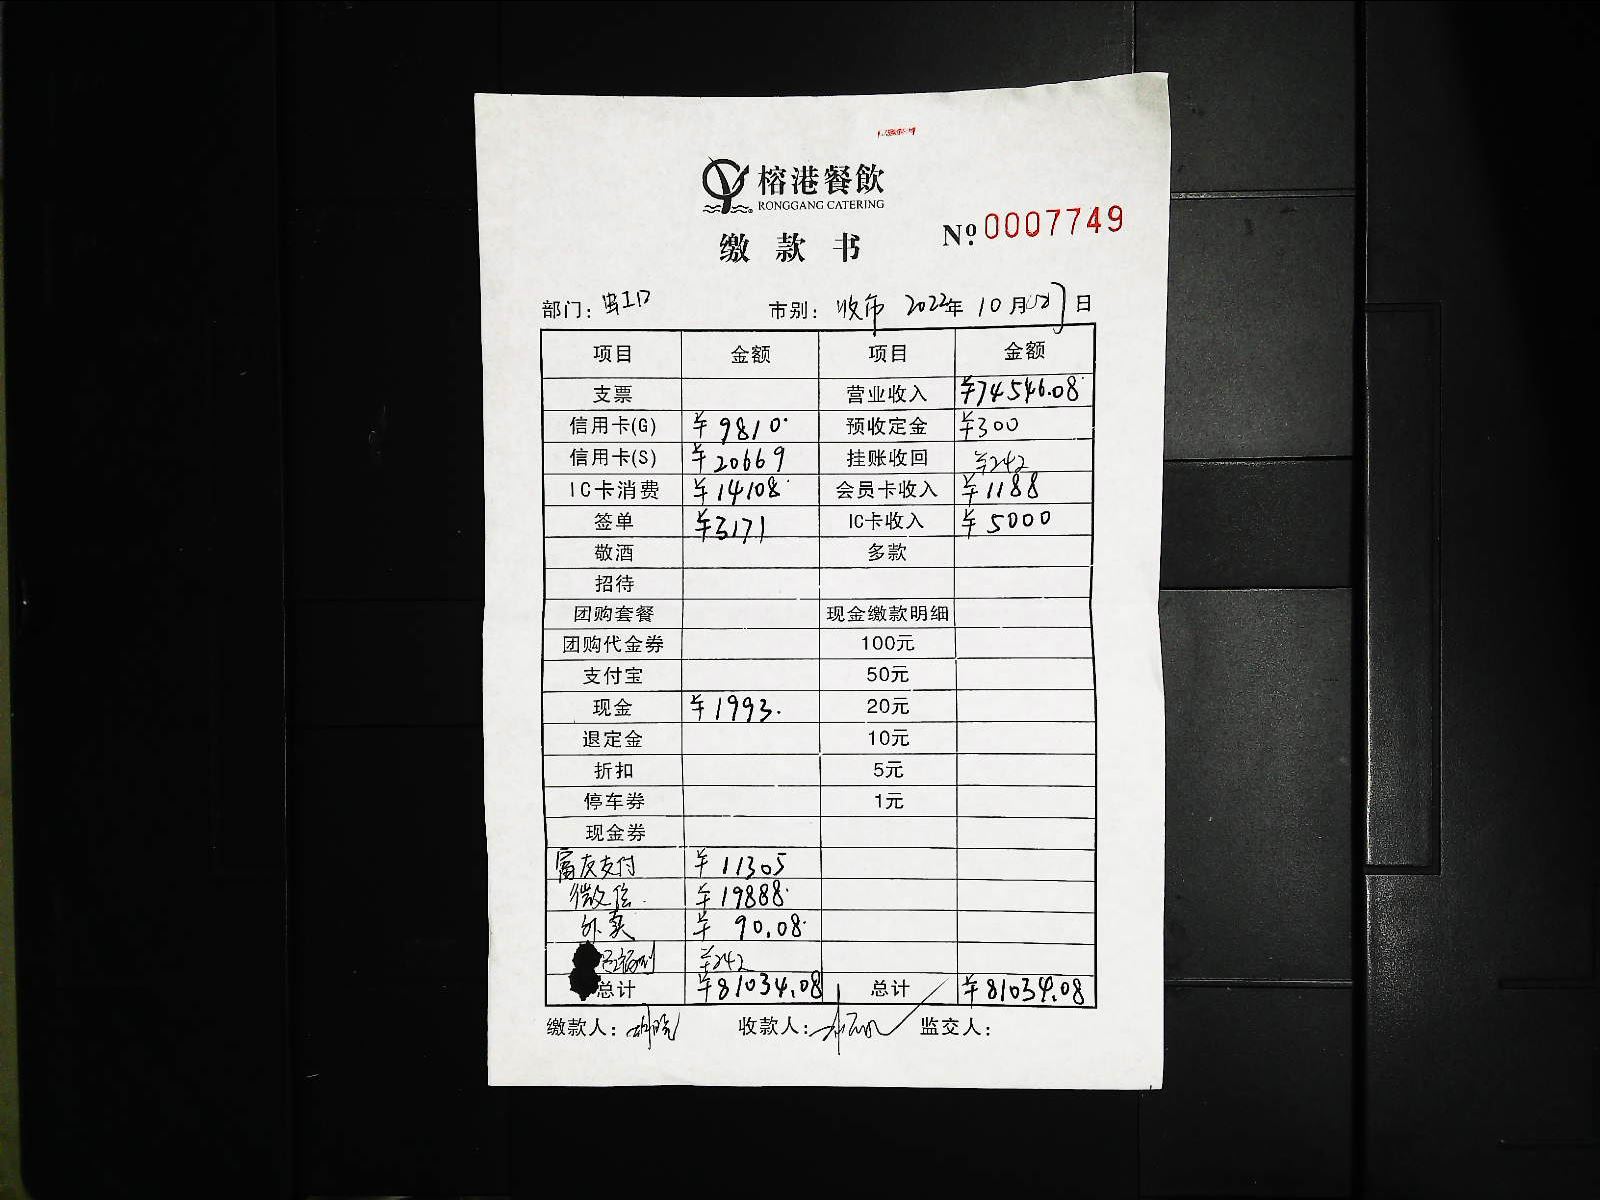 榕港餐飲
RONGGANG CATERING
缴款书
№ 0007749
部门： 市别： 2022年 10月 日
项目 金额 项目 金额
支票 营业收入 ¥74546.08
信用卡(G) ¥9810 预收定金 ¥300
信用卡(S) ¥20669 挂账收回 ¥242
IC卡消费 ¥14108 会员卡收入 ¥1188
签单 ¥3171 IC卡收入 ¥5000
敬酒 多款
招待
团购套餐 现金缴款明细
团购代金券 100元
支付宝 50元
现金 ¥1993. 20元
退定金 10元
折扣 5元
停车券 1元
现金券
富友支付 ¥11305
微信 ¥19888
外卖 ¥90.08
¥242
总计 ¥81034.08 总计 ¥81034.08
缴款人： 收款人： 监交人：